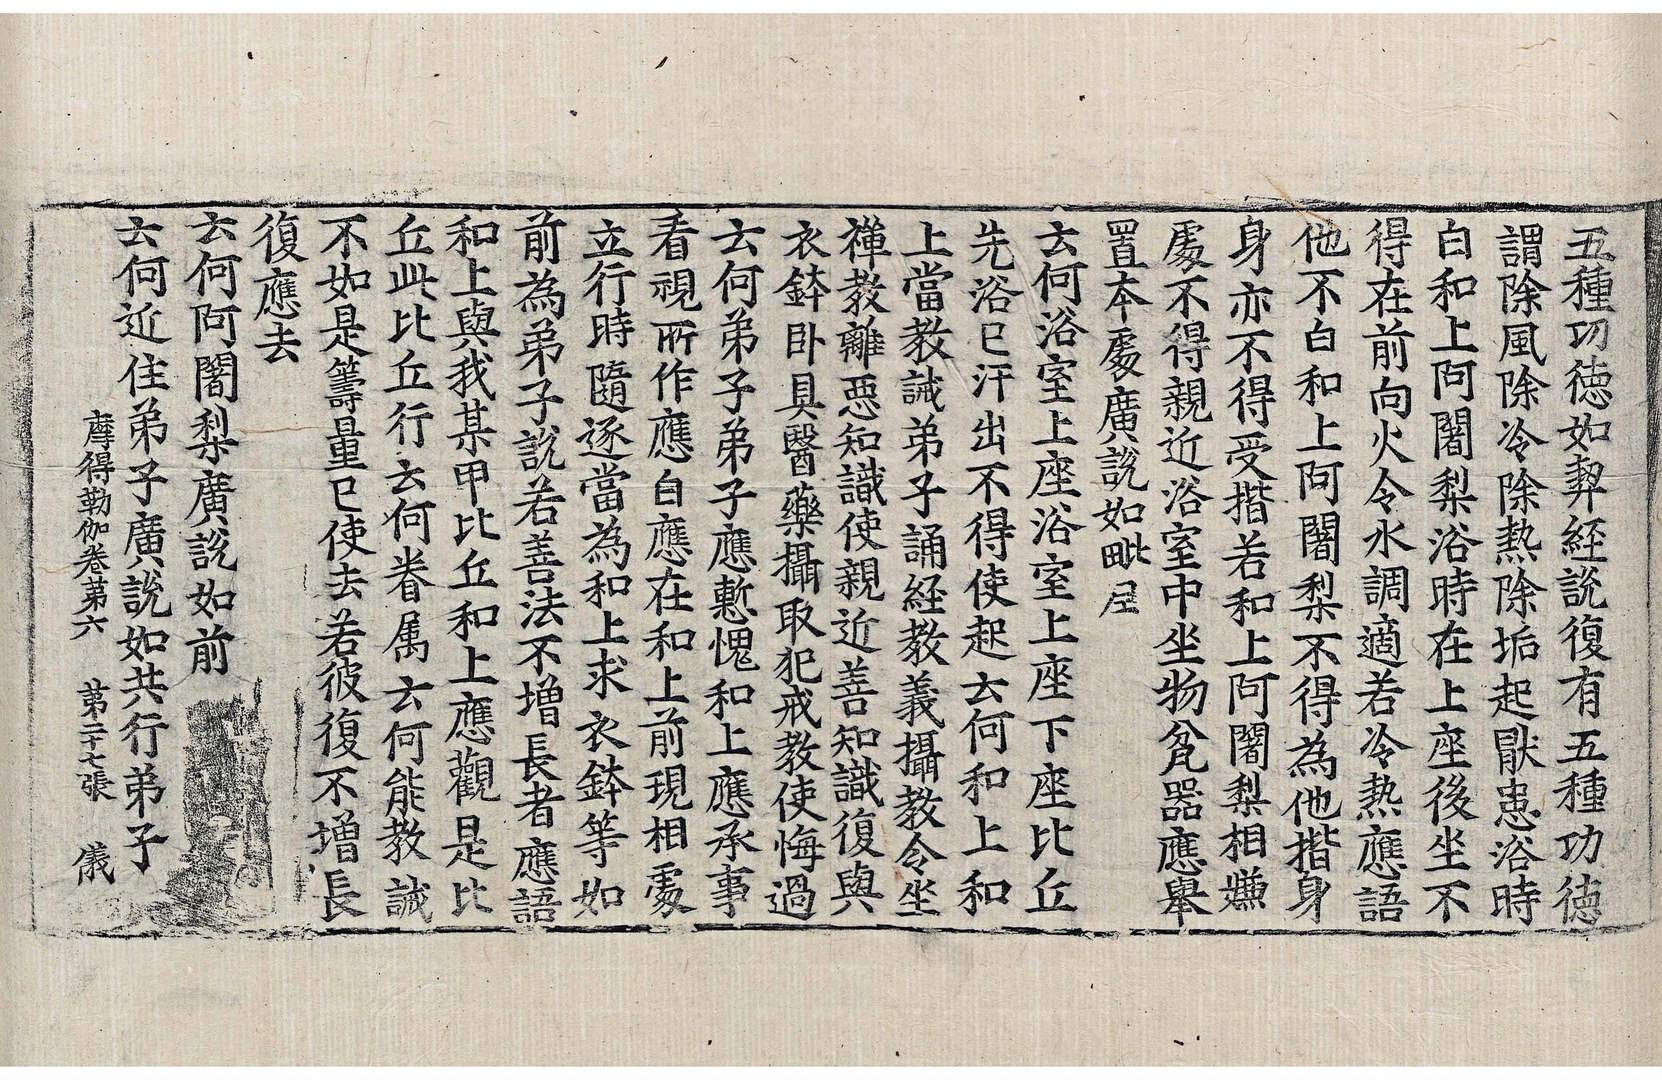 五種功德如契經說復有五種功德
謂除風除冷除熱除垢起猒患浴時
白和上阿闍梨浴時在上座後坐不
得在前向火令水調適若冷熱應語
他不白和上阿闍梨不得為他揩身
身亦不得受揩若和上阿闍梨相嫌
處不得親近浴室中坐物瓫器應舉
置本處廣說如毗尼
去何浴室上座浴室上座下座比丘
先浴已汗出不得使起去何和上和
上當教誡弟子誦経教義攝教令坐
禪教離惡知識使親近善知識復與
衣鉢卧具醫藥攝取犯戒教使悔過
去何弟子弟子應慙愧和上應承事
看視所作應白應在和上前現相處
立行時隨逐當為和上求衣鉢等如
前為弟子說若善法不增長者應語
和上與我某甲比丘和上應觀是比
丘此比丘行去何眷属去何能教誡
不如是籌量已使去若彼復不增長
復應去
去何阿闍梨廣說如前
去何近住弟子廣說如共行弟子
摩得勒伽卷第六 第二十七張 儀